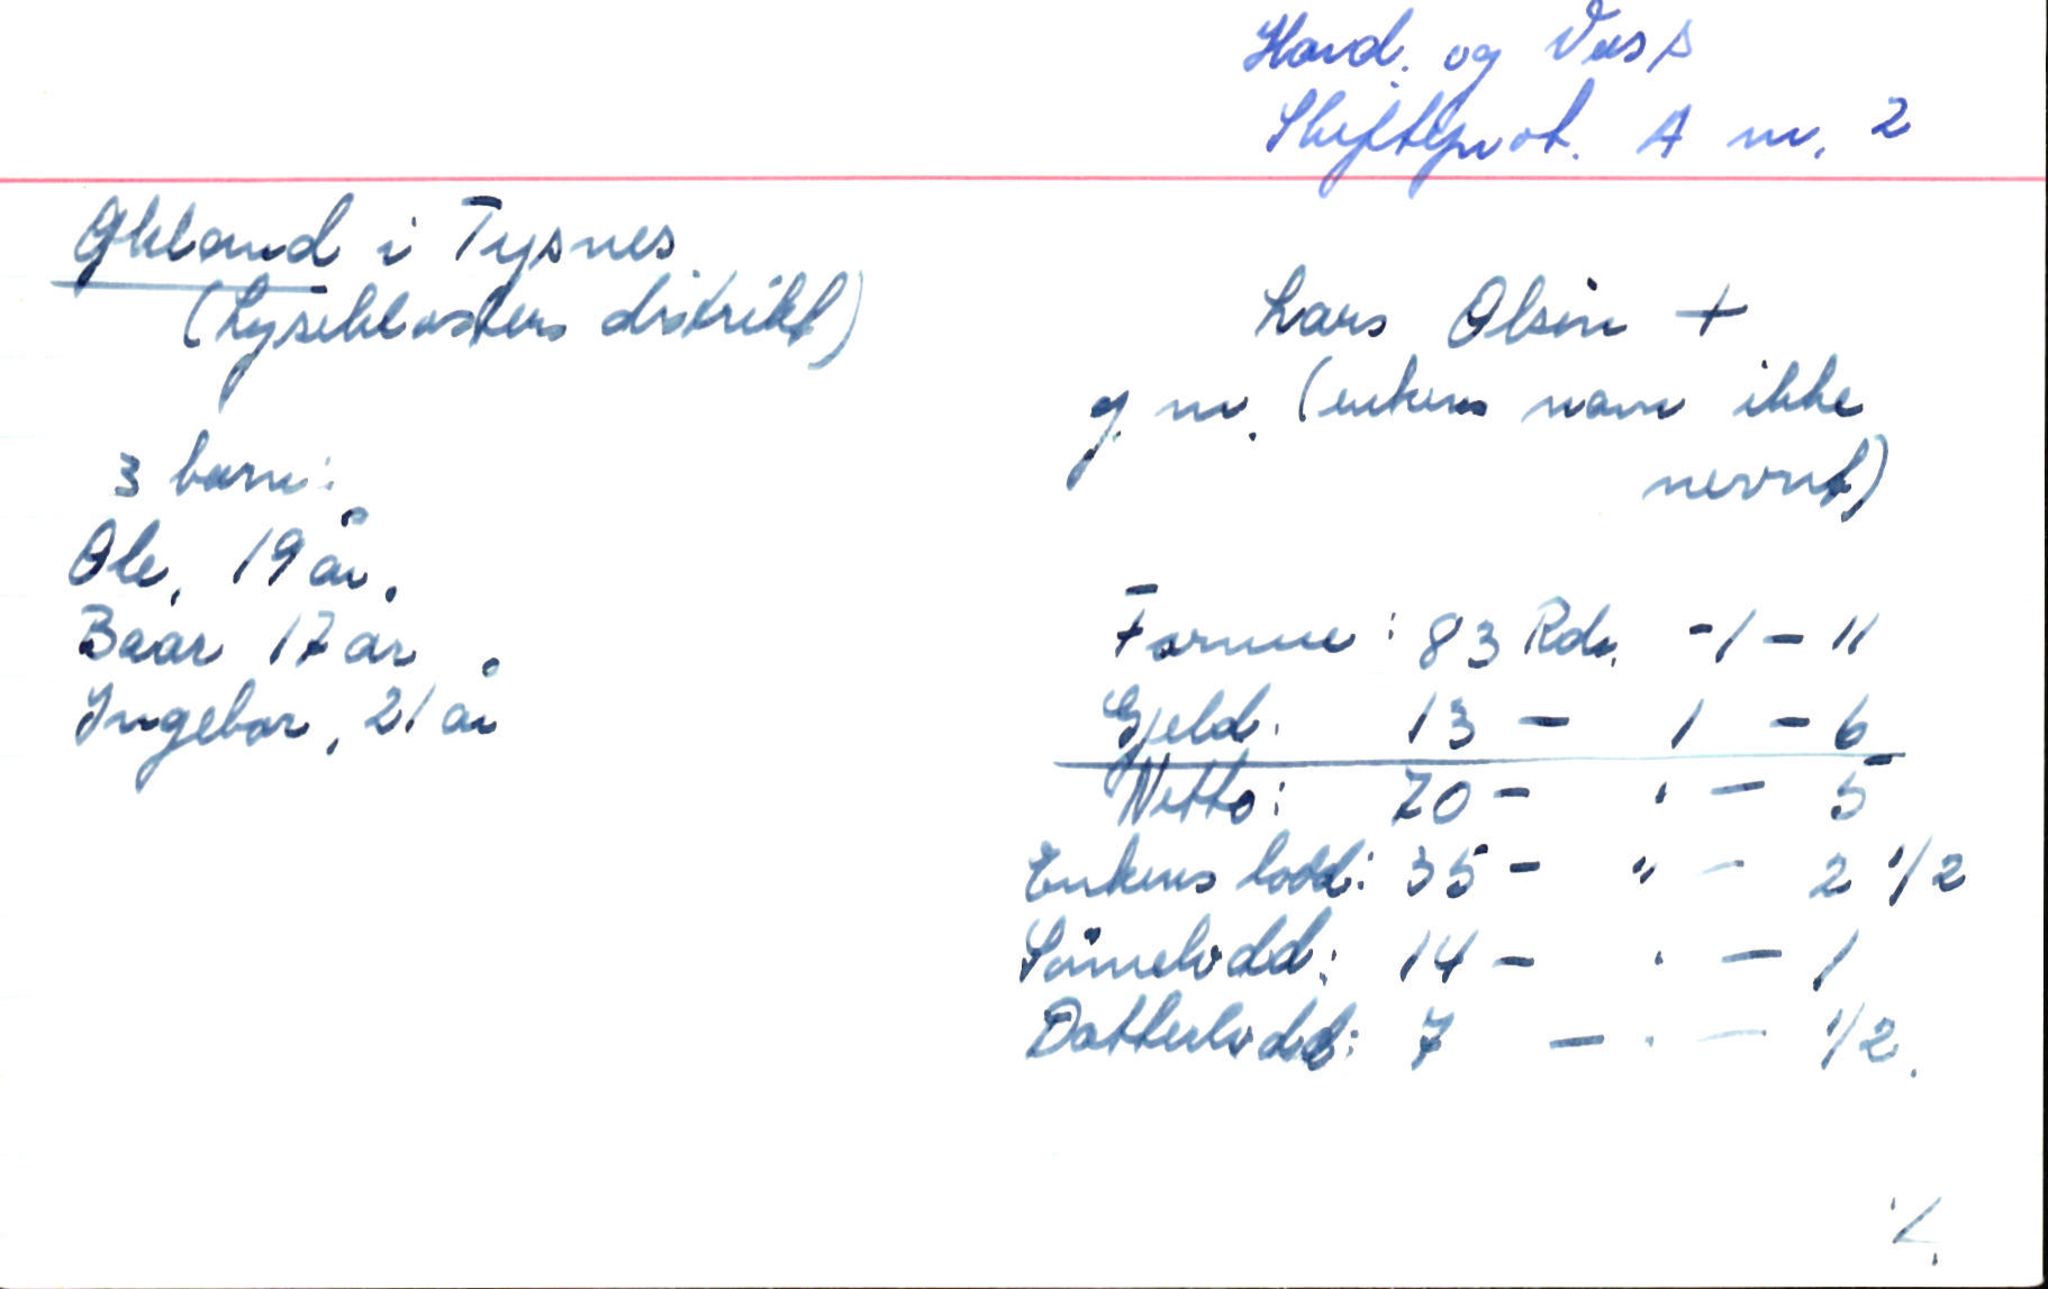 Hard. og Voss
Skifteprot. A nr. 2
Økland i Tysnes
(Lyseklosters distrikt)
Lars Olsen +
g. m. (enkens navn ikke
nevnt)
3 barn:
Ole, 19 år.
Baar 17 år
Ingebor, 21 år
Formue: 83 Rdr. - 1 - 11
Gjeld. 13 - 1 - 6
Netto: 70 - " - 5
Enkens lodd: 35 - " - 2 1/2
Sønnelodd: 14 - " - 1
Datterlodd: 7 - " - 1/2.